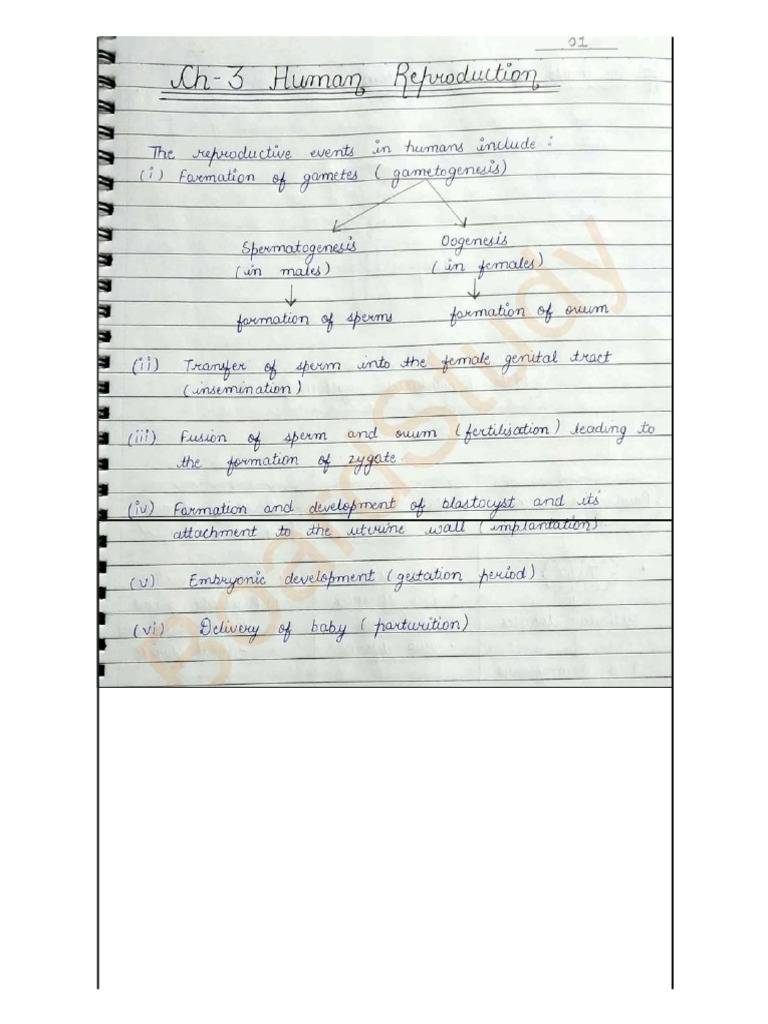 01
Ch-3 Human Reproduction
The reproductive events in humans include :
(i) Formation of gametes ( gametogenesis)
Spermatogenesis Oogenesis
(in males) (in females)
formation of sperms formation of ovum
(ii) Transfer of sperm into the female genital tract
(insemination)
(iii) Fusion of sperm and ovum (fertilisation) leading to
the formation of zygote.
(iv) Formation and development of blastocyst and its
attachment to the uterine wall (implantation).
(v) Embryonic development (gestation period).
(vi) Delivery of baby (parturition)
BoardStudy